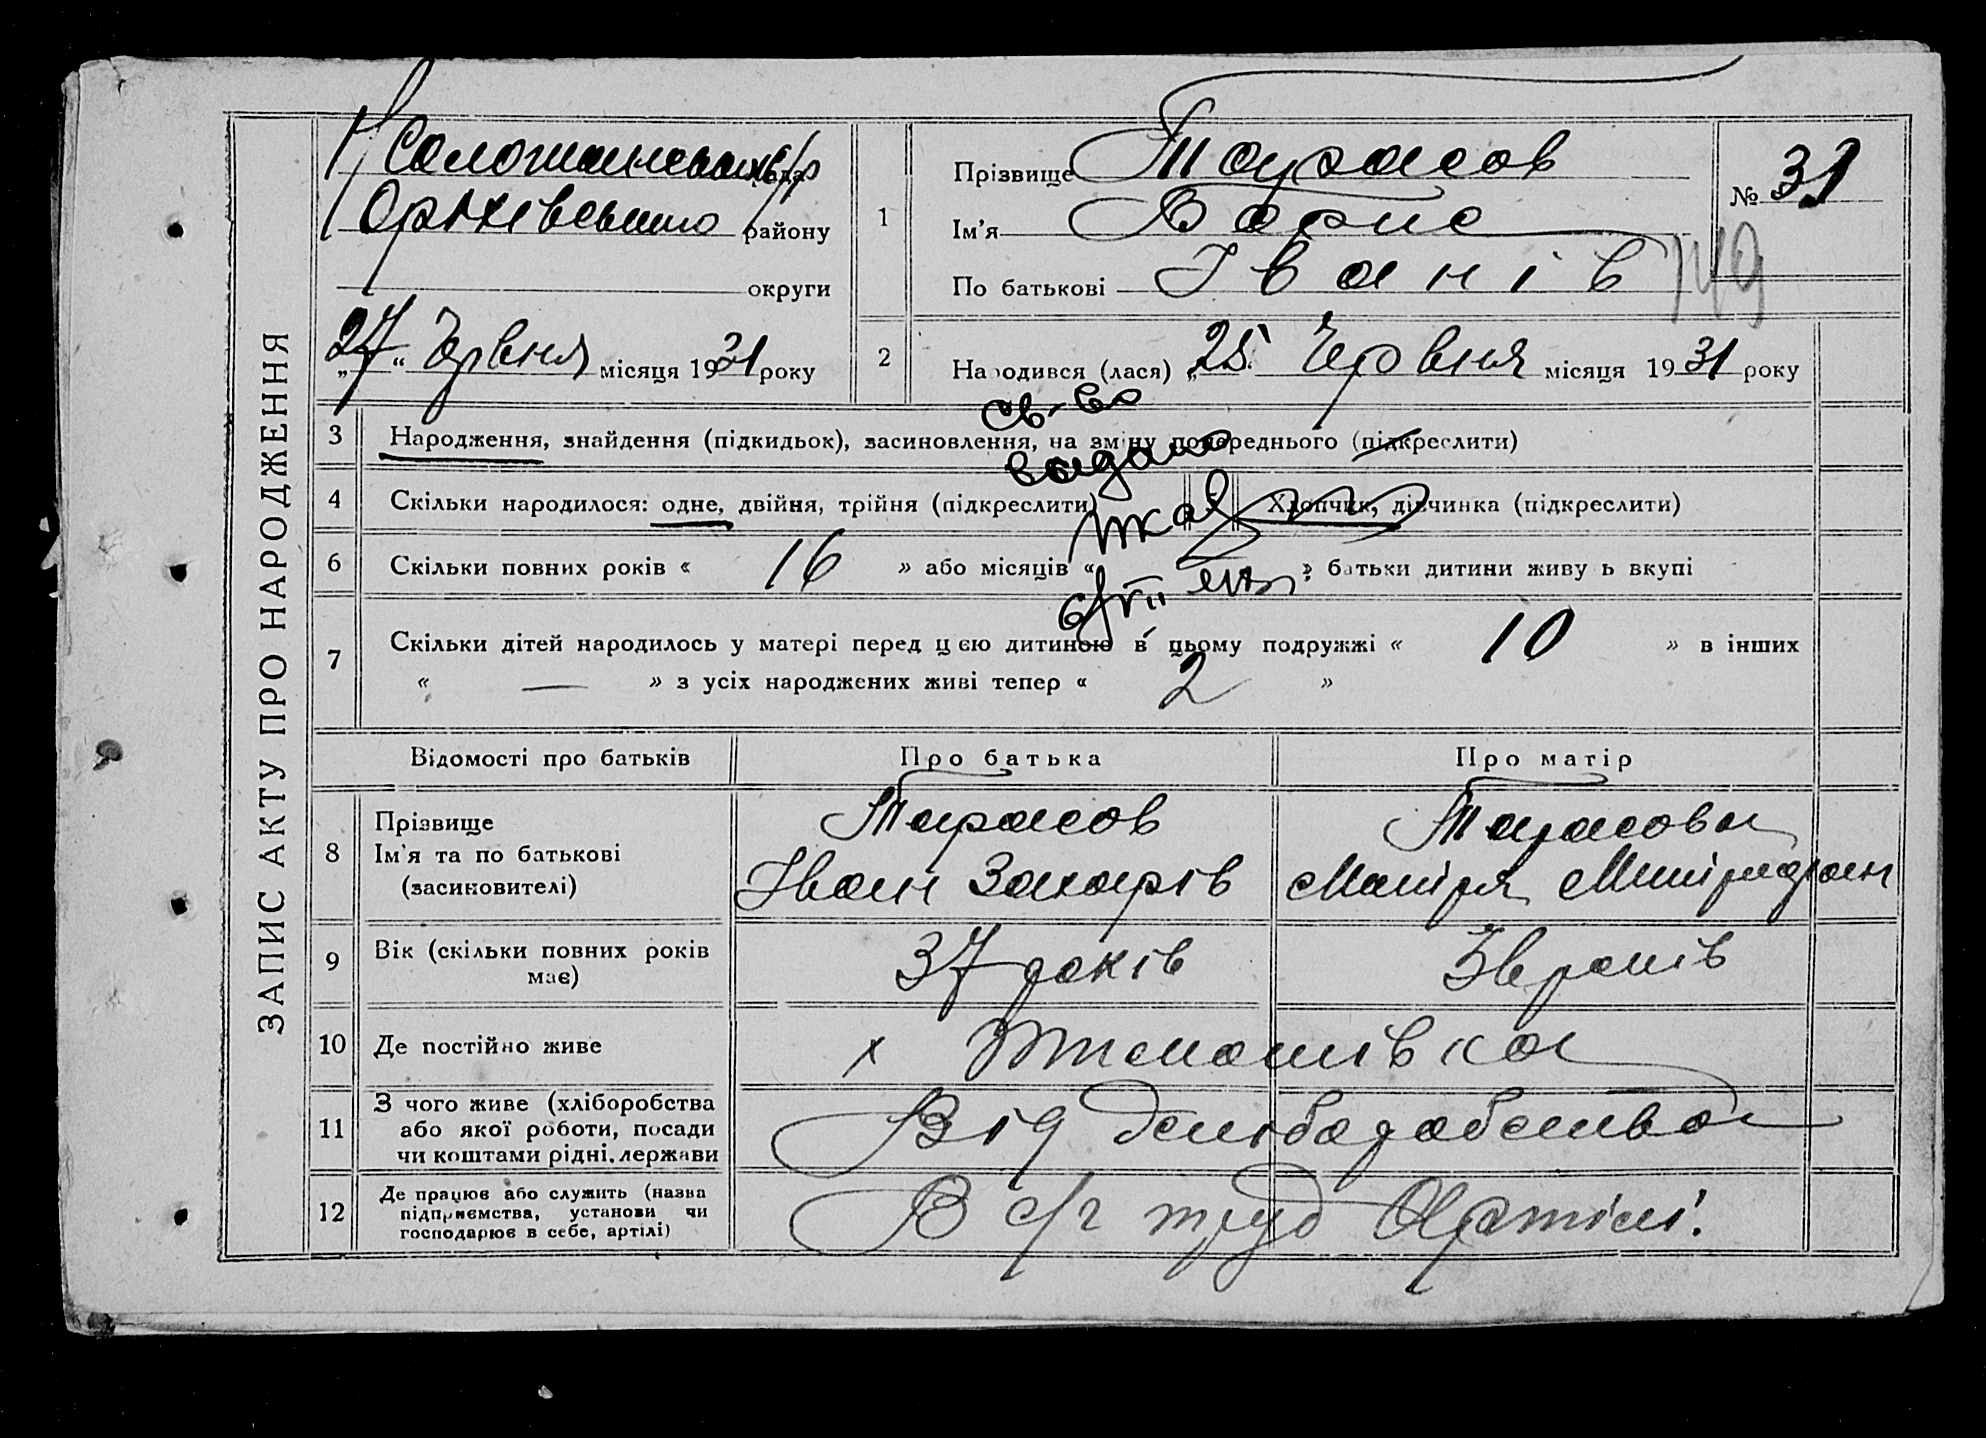 ЗАПИС АКТУ ПРО НАРОДЖЕННЯ
с/р
Оріхівського району
округи
„27“ Червня місяця 1931 року
1
Прізвище Тарасов
Ім'я Борис
По батькові Іванів
№ 31
2
Народився (лася) „25 Червня місяця 1931 року
св-во
3 Народження, знайдення (підкидьок), засиновлення, на зміну попереднього (підкреслити)
видано
4 Скільки народилося: одне, двійня, трійня (підкреслити) Хлопчик, дівчинка (підкреслити)
6 Скільки повних років « 16 » або місяців « » батьки дитини живуть вкупі
7 Скільки дітей народилось у матері перед цією дитиною в цьому подружжі « 10 » в інших
« — » з усіх народжених живі тепер « 2 »
Відомості про батьків Про батька Про матір
8 Прізвище
Ім'я та по батькові
(засиновителі)
Тарасов
Іван Захарів
Тарасова
Марія
9 Вік (скільки повних років має)
37 років
років
10 Де постійно живе
х
11 З чого живе (хліборобства
або якої роботи, посади
чи коштами рідні, держави
Від хліборобства
12 Де працює або служить (назва
підприємства, установи чи
господарює в себе, артілі)
В с/г труд Артілі.